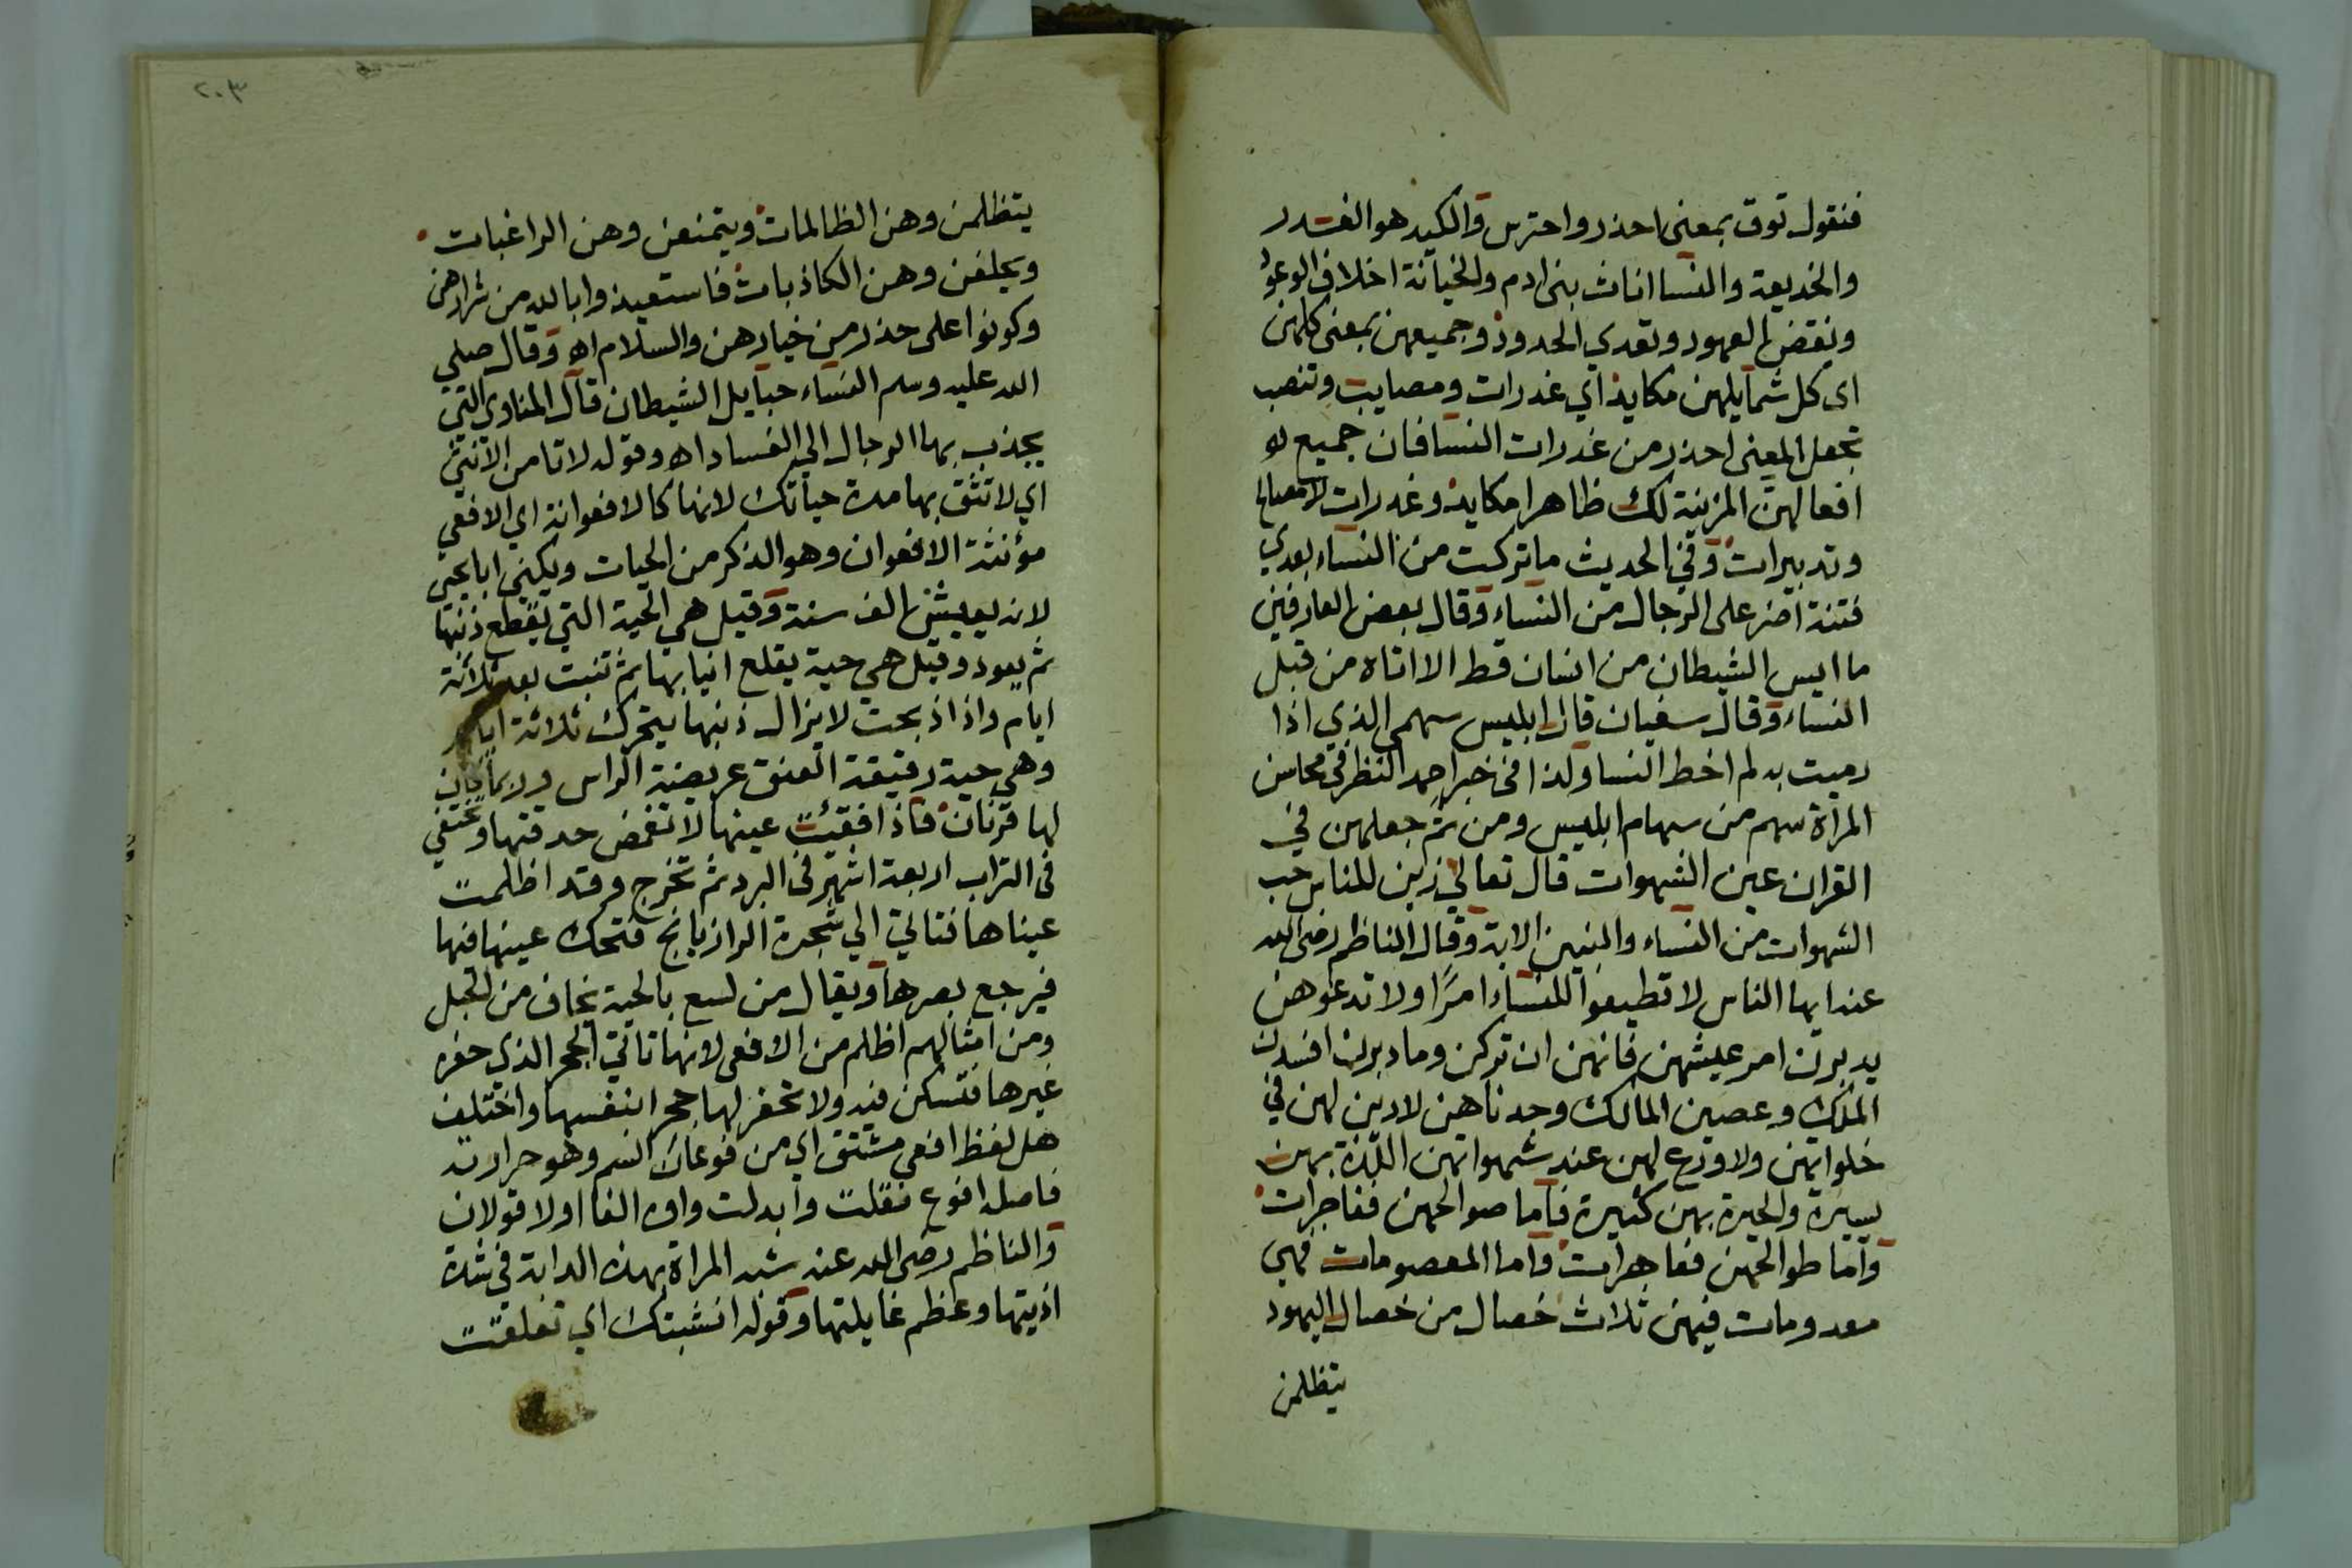 فنقول توق بمعنى احذر واحترس والكيد هو الغدر
والخديعة والنسا اناث بنى ادم والخيانة اخلاف الوعود
ونقض العهود وتعدي الحدود وجميعهن بمعنى كلهن
اى كل شمايلهن مكايد اي غدرات ومصايب وتنصب
بجعل المعنى احذر من غدرات النسا فان جميع
افعالهن المزينة لك ظاهرا مكايد وغدرات
وتدبيرات وفي الحديث ما تركت من النساء بعدي
فتنة اضر على الرجال من النساء وقال بعض العارفين
ما ايس الشيطان من انسان قط الا اتاه من قبل
النساء وقال سفيان قال ابليس سهمي الذي اذا
رميت به لم اخط النسا ولذا في خبر احمد النظر في محاسن
المرأة سهم من سهام ابليس ومن ثم جعلهن في
القران عين الشهوات قال تعالي زين للناس حب
الشهوات من النساء والبنين الاية وقال الناظم رضى الله
عنه ايها الناس لا تطيعوا للنساء امرًا ولا تدعوهن
يدبرن امر عيشهن فانهن ان تركن وما دبرن افسدن
الملك وعصين المالك وجدناهن لا دين لهن في
خلواتهن ولا ورع لهن عند شهواتهن اللذة بهن
يسيرة والحيرة بهن كثيرة فأما صوالحهن ففاجرات
وأما طوالحهن فعاهرات وأما المعصومات فهي
معدومات فيهن ثلاث خصال من خصال اليهود
يتظلمن
٢٠٣
يتظلمن وهن الظالمات ويتمنعن وهن الراغبات
ويحلفن وهن الكاذبات فاستعيذوا بالله من شرارهن
وكونوا على حذر من خيارهن والسلام اه وقال صلي
الله عليه وسلم النساء حبايل الشيطان قال المناوى التي
يجذب بها الرجال الي الفساد اه وقوله لا تامن الانثى
اي لا تثق بها مدة حياتك لانها كالافعوانة اي الافعي
مؤنثة الافعوان وهو الذكر من الحيات ويكنى ابا يحيى
لانه يعيش الف سنة وقيل هي الحية التي يقطع ذنبها
ثم يعود وقيل هي حية يقلع انيابها ثم تنبت بعد ثلاثة
ايام واذا ذبحت لا يزال ذنبها يتحرك ثلاثة ايام
وهي حية دقيقة العنق عريضة الراس وربما كان
لها قرنان فاذا فقئت عينها لا تغمض حدقتها وتختفي
في التراب اربعة اشهر في البرد ثم تخرج وقد اظلمت
عيناها فتاتي الي شجرة الرازيانج فتحك عينها فيها
فيرجع بصرها ويقال من لسع بالحية يخاف من الحبل
ومن امثالهم اظلم من الافعى لانها تاتي الجحر الذى حفره
غيرها فتسكن فيه ولا تحفر لها جحرا بنفسها واختلف
هل لفظ افعي مشتق اي من فوعان السم وهو حرارته
فاصله افوع فقلت وابدلت واوه الفا اولا قولان
والناظم رضى الله عنه شبه المراة بهذه الدابة في شدة
اذيتها وعظم غايلتها وقوله انشبتك اي تعلقت